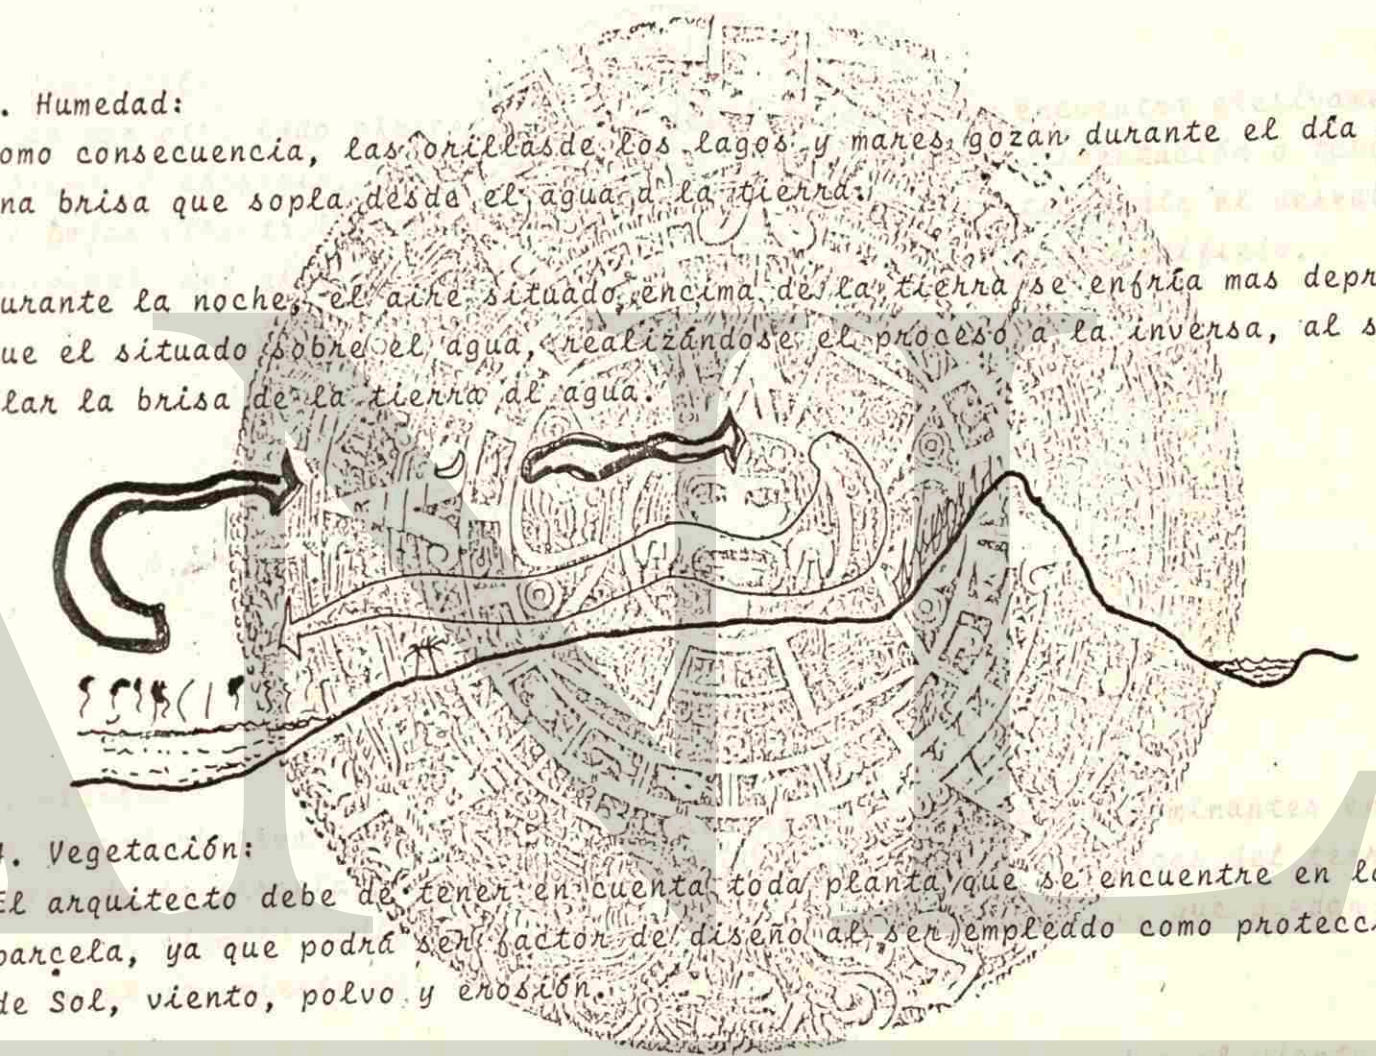 . Humedad:
omo consecuencia, las orillasde los lagos y mares, gozan durante el día
na brisa que sopla desde el agua a la tierra.
urante la noche, el aire situado encima de la tierra se enfría mas depr
ue el situado sobre el agua, realizándose el proceso a la inversa, al s
lar la brisa de la tierra al agua.
4. Vegetación:
El arquitecto debe de tener en cuenta toda planta que se encuentre en la
parcela, ya que podrá ser factor de diseño al ser empleado como protecc
de Sol, viento, polvo y erosión.